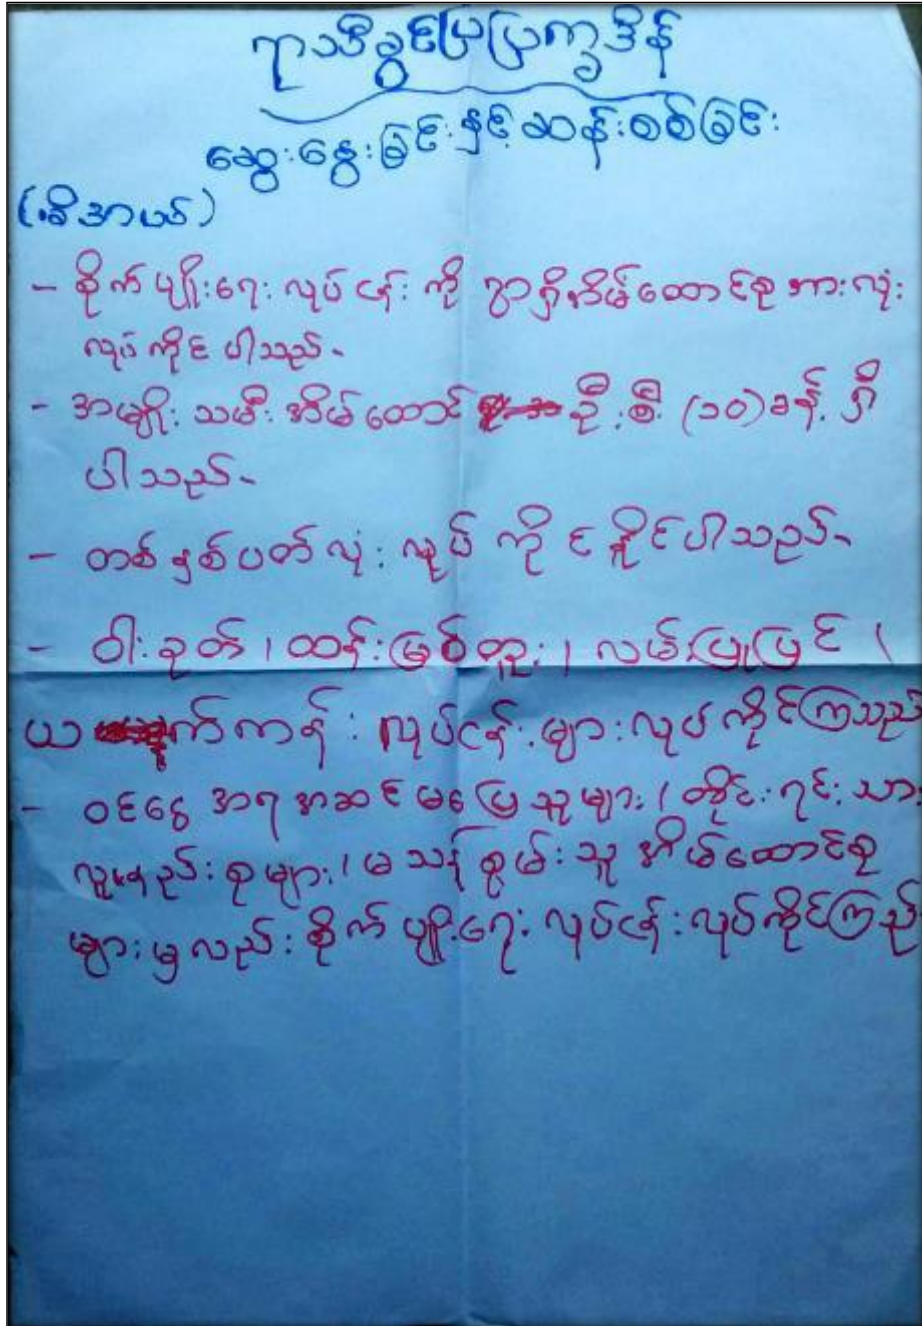 ရာသီခွင်ပြပြက္ခဒိန်
ဆွေးနွေးခြင်းနှင့်ဆန်းစစ်ခြင်း
- စိုက်ပျိုးရေးလုပ်ငန်းကို ရွာရှိအိမ်ထောင်စုအားလုံး
လုပ်ကိုင်ပါသည်-
- အမျိုးသမီးအိမ်ထောင် ဦးစီး (၁၀)ခန့် ရှိ
ပါသည်-
- တစ်နှစ်ပတ်လုံး လုပ်ကိုင်နိုင်ပါသည်-
- ဝါးခုတ်၊ ထန်းမြစ်တူး၊ လမ်းပြုပြင်၊
ယက်ကန်း လုပ်ငန်းများလုပ်ကိုင်ကြသည်
- ဝင်ငွေအရအဆင်မပြေသူများ၊ တိုင်းရင်းသား
လူနည်းစုများ၊ မသန်စွမ်းသူ အိမ်ထောင်စု
များမှလည်း စိုက်ပျိုးရေးလုပ်ငန်းလုပ်ကိုင်ကြည်